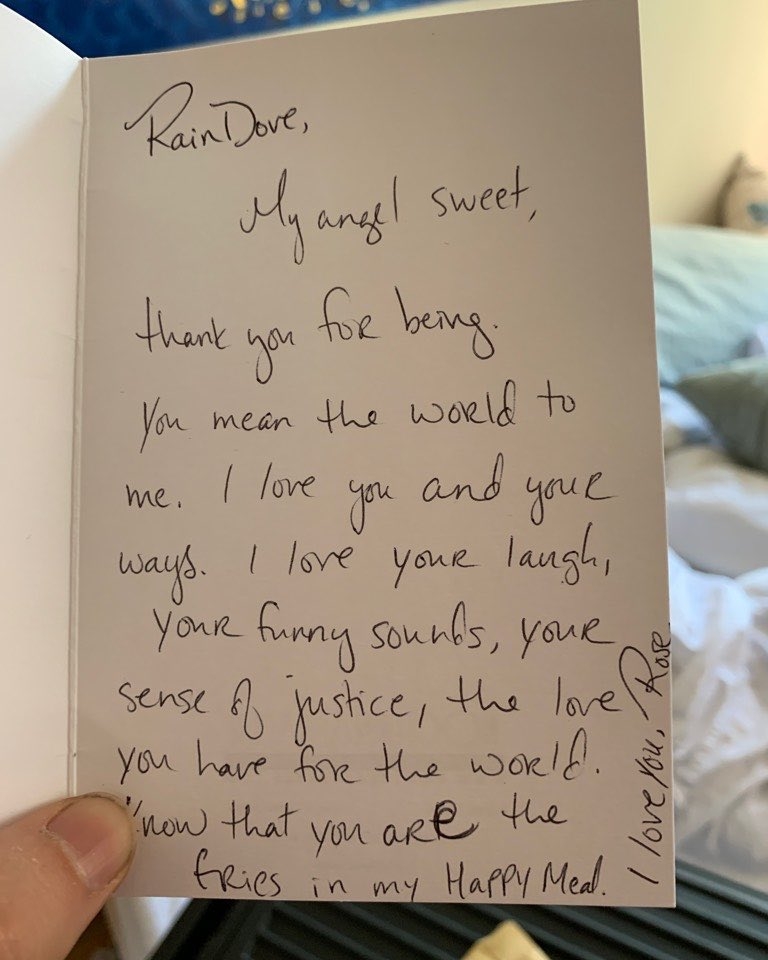 RainDove,
My angel sweet,
thank you for being.
You mean the world to
me. I love you and your
ways. I love your laugh,
your funny sounds, your
sense of justice, the love
you have for the world.
Know that you are the
fries in my Happy Meal.
I love you, Rose